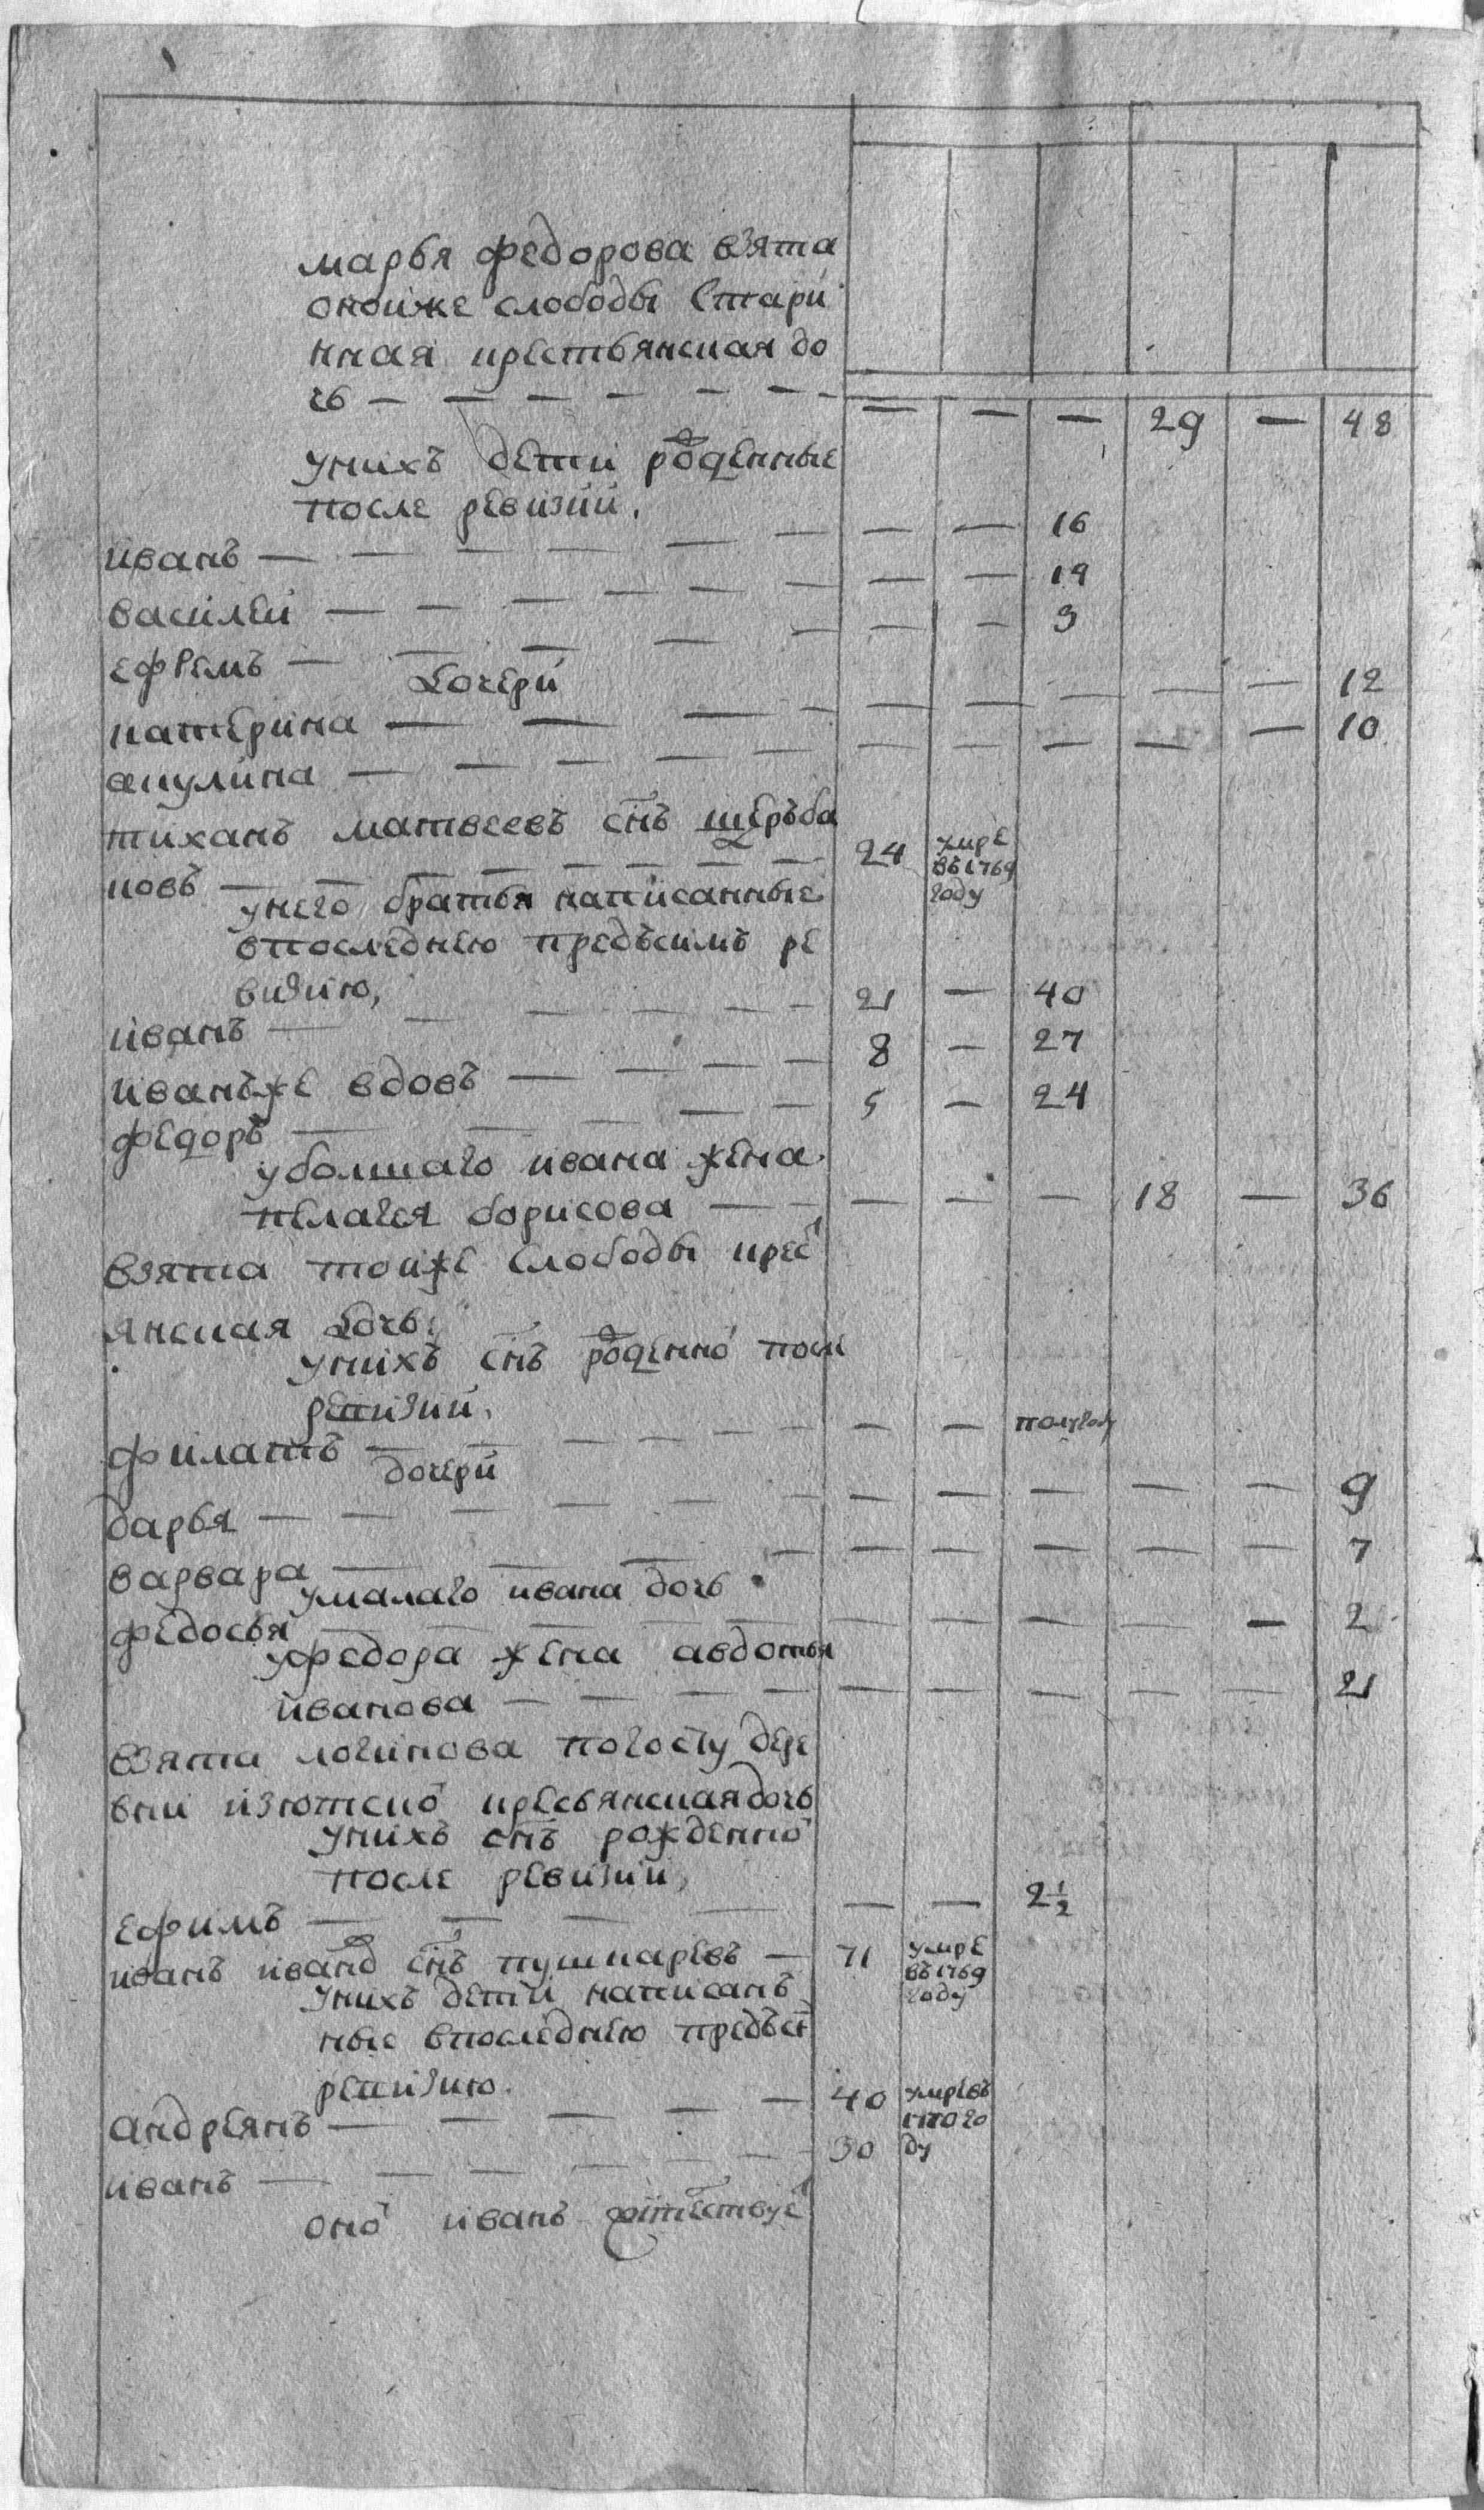 марья федорова взята
оноиже слободы стари
нная крестьянская до
чь — — — — — — — — — — 29 — 48
унихъ дети рожденные
после ревизии.
иванъ — — — — — — — — 16
василеи — — — — — — — — 19
ефремъ — — — — — — — 3
дочери
катерина — — — — — — — — — 12
акулина — — — — — — — — — — 10
тиханъ матвеевъ снъ щербъба
ковъ — — — — — — 24 умре въ 1769 году
унего братья написанные
впоследнею предъсимъ ре
визию,
иванъ — — — — — — 21 — 40
иванъже вдовъ — — — — 8 — 27
федоръ — — — — — 5 — 24
уболшаго ивана жена
пелагея борисова — — — — — 18 — 36
взята тоиже слободы крес
янская дочь.
унихъ снъ рожденно после
ревизии.
филатъ — — — — — — — — полугоду
дочери
дарья — — — — — — — — — — — 9
варвара — — — — — — — — — 7
умалаго ивана дочь
федосья — — — — — — — — — — 2
уфедора жена авдотья
иванова — — — — — — — — — 21
взята логинова погосту дере
вни кресьянскаядочь
унихъ снъ рожденно
после ревизии,
ефимъ — — — — — — 2 1/2
иванъ иванов снъ пушкаревъ — 71 умре въ 1769 году
унихъ дети написанъ
ные впоследнею предъсим
ревизию.
андреянъ — — — — — 40 умревъ 1770 го
иванъ — — — — — — 30 ду
оно иванъ